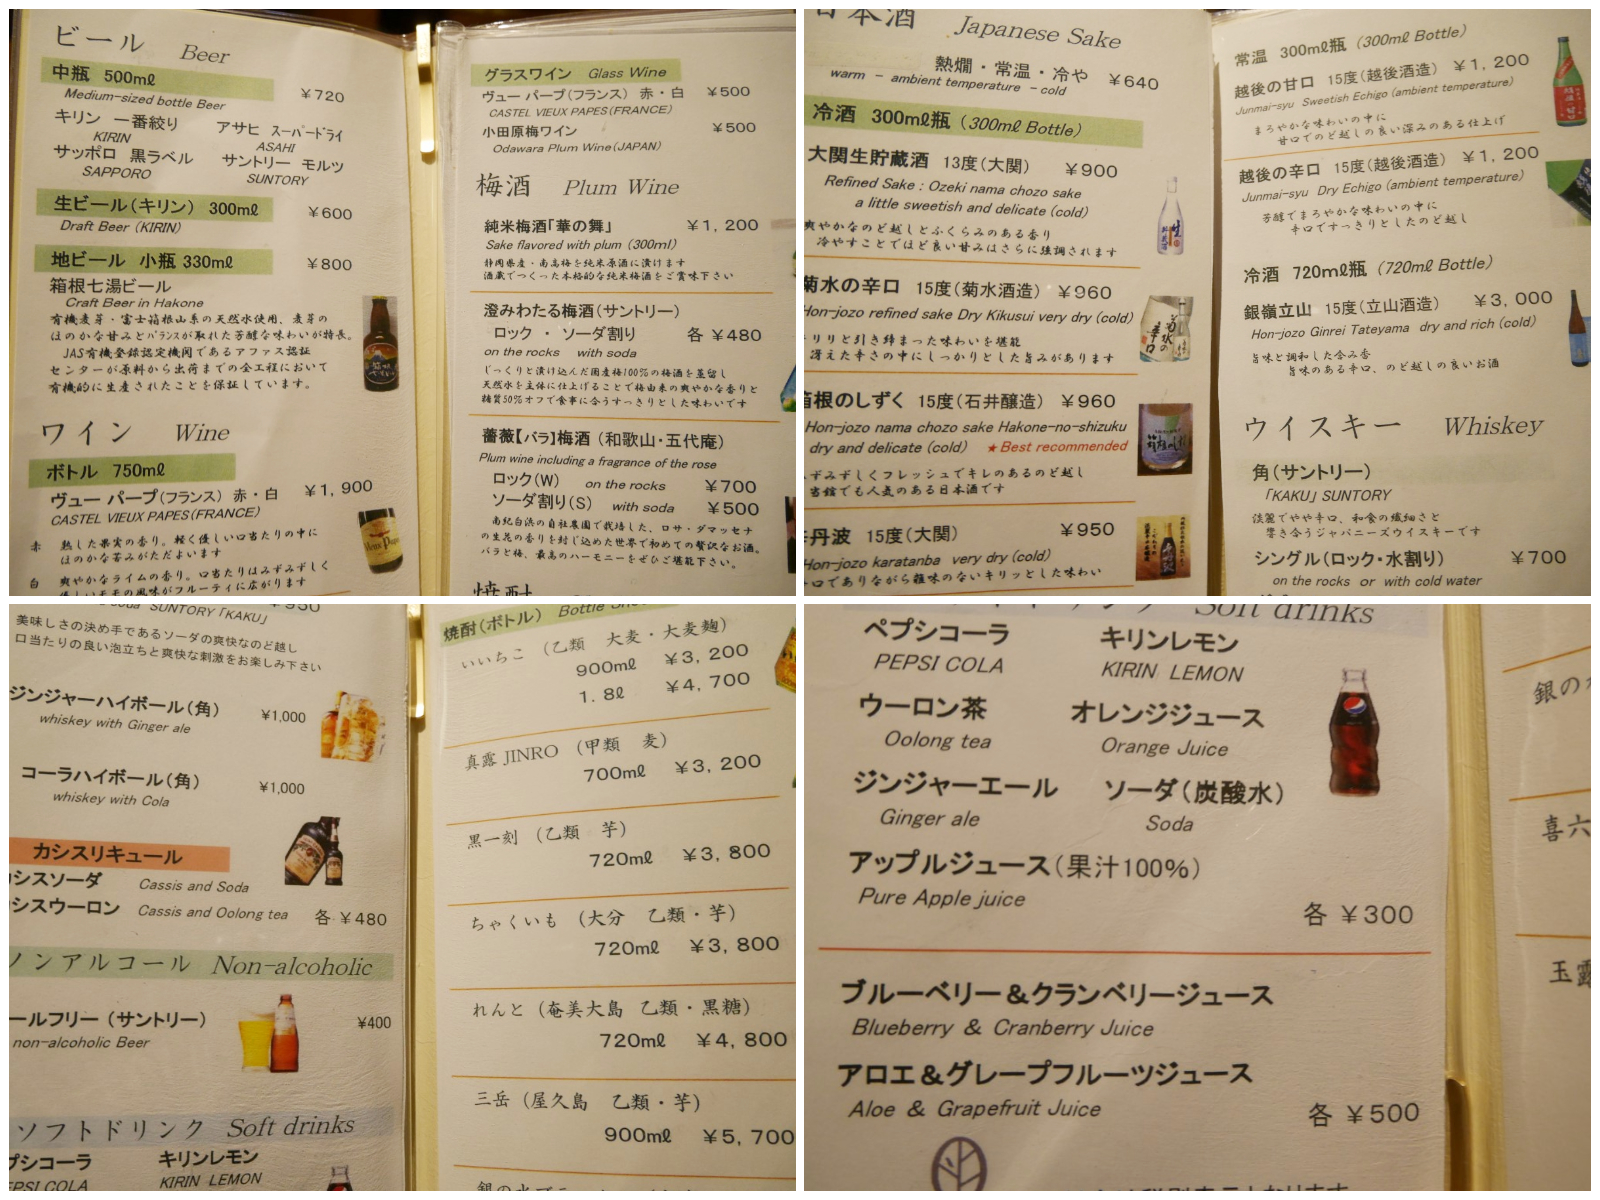 ビール Beer
中瓶 500mℓ
Medium-sized bottle Beer ￥720
キリン 一番絞り アサヒ スーパードライ
KIRIN ASAHI
サッポロ 黒ラベル サントリー モルツ
SAPPORO SUNTORY
生ビール(キリン) 300mℓ ￥600
Draft Beer (KIRIN)
地ビール 小瓶 330mℓ ￥800
箱根七湯ビール
Craft Beer in Hakone
有機麦芽・富士箱根山系の天然水使用、麦芽の
ほのかな甘みとバランスが取れた芳醇な味わいが特長。
JAS有機登録認定機関であるアファス認証
センターが原料から出荷までの全工程において
有機的に生産されたことを保証しています。
ワイン Wine
ボトル 750mℓ
ヴュー パープ(フランス) 赤・白 ￥1,900
CASTEL VIEUX PAPES(FRANCE)
赤 熟した果実の香り。軽く優しい口当たりの中に
ほのかな苦みがただよいます
白 爽やかなライムの香り。口当たりはみずみずしく
優しいモモの風味がフルーティに広がります
グラスワイン Glass Wine
ヴュー パープ(フランス) 赤・白 ￥500
CASTEL VIEUX PAPES(FRANCE)
小田原梅ワイン ￥500
Odawara Plum Wine(JAPAN)
梅酒 Plum Wine
純米梅酒「華の舞」 ￥1,200
Sake flavored with plum (300ml)
静岡県産・南高梅を純米原酒に漬けます
酒蔵でつくった本格的な純米梅酒をご賞味下さい
澄みわたる梅酒(サントリー)
ロック ・ ソーダ割り 各 ￥480
on the rocks with soda
じっくりと漬け込んだ国産梅100%の梅酒を蒸留し
天然水を主体に仕上げることで梅由来の爽やかな香りと
糖質50%オフで食事に合うすっきりとした味わいです
薔薇【バラ】梅酒 (和歌山・五代庵)
Plum wine including a fragrance of the rose
ロック(W) on the rocks ￥700
ソーダ割り(S) with soda ￥500
南紀白浜の自社農園で栽培した、ロサ・ダマッセナ
の生花の香りを封じ込めた世界で初めての贅沢なお酒。
バラと梅、最高のハーモニーをぜひご堪能下さい。
焼酎
日本酒 Japanese Sake
熱燗・常温・冷や ￥640
warm - ambient temperature - cold
冷酒 300mℓ瓶 (300mℓ Bottle)
大関生貯蔵酒 13度(大関) ￥900
Refined Sake : Ozeki nama chozo sake
a little sweetish and delicate (cold)
爽やかなのど越しとふくらみのある香り
冷やすことでほど良い甘みはさらに強調されます
菊水の辛口 15度(菊水酒造) ￥960
Hon-jozo refined sake Dry Kikusui very dry (cold)
リリと引き締まった味わいを堪能
冴えた辛さの中にしっかりとした旨みがあります
箱根のしずく 15度(石井醸造) ￥960
Hon-jozo nama chozo sake Hakone-no-shizuku
dry and delicate (cold) ★Best recommended
ずみずしくフレッシュでキレのあるのど越し
当館でも人気のある日本酒です
丹波 15度(大関) ￥950
Hon-jozo karatanba very dry (cold)
口でありながら雑味のないキリッとした味わい
常温 300mℓ瓶 (300mℓ Bottle)
越後の甘口 15度(越後酒造) ￥1,200
Junmai-syu Sweetish Echigo (ambient temperature)
まろやかな味わいの中に
甘口でのど越しの良い深みのある仕上げ
越後の辛口 15度(越後酒造) ￥1,200
Junmai-syu Dry Echigo (ambient temperature)
芳醇でまろやかな味わいの中に
辛口ですっきりとしたのど越し
冷酒 720mℓ瓶 (720mℓ Bottle)
銀嶺立山 15度(立山酒造) ￥3,000
Hon-jozo Ginrei Tateyama dry and rich (cold)
旨味と調和した含み香
旨味のある辛口、のど越しの良いお酒
ウイスキー Whiskey
角(サントリー)
「KAKU」 SUNTORY
淡麗でやや辛口、和食の繊細さと
響き合うジャパニーズウイスキーです
シングル(ロック・水割り) ￥700
on the rocks or with cold water
soda SUNTORY「KAKU」
美味しさの決め手であるソーダの爽快なのど越し
口当たりの良い泡立ちと爽快な刺激をお楽しみ下さい
ジンジャーハイボール(角) ¥1,000
whiskey with Ginger ale
コーラハイボール(角) ¥1,000
whiskey with Cola
カシスリキュール
カシスソーダ Cassis and Soda
シスウーロン Cassis and Oolong tea 各 ￥480
ノンアルコール Non-alcoholic
ールフリー (サントリー) ¥400
non-alcoholic Beer
ソフトドリンク Soft drinks
プシコーラ キリンレモン
EPSI COLA KIRIN LEMON
焼酎(ボトル) Bottle
いいちこ (乙類 大麦・大麦麹)
900mℓ ￥3,200
1.8ℓ ￥4,700
真露 JINRO (甲類 麦)
700mℓ ￥3,200
黒一刻 (乙類 芋)
720mℓ ￥3,800
ちゃくいも (大分 乙類・芋)
720mℓ ￥3,800
れんと (奄美大島 乙類・黒糖)
720mℓ ￥4,800
三岳 (屋久島 乙類・芋)
900mℓ ￥5,700
Soft drinks
ペプシコーラ キリンレモン
PEPSI COLA KIRIN LEMON
ウーロン茶 オレンジジュース
Oolong tea Orange Juice
ジンジャーエール ソーダ(炭酸水)
Ginger ale Soda
アップルジュース(果汁100%)
Pure Apple juice
各 ￥300
ブルーベリー＆クランベリージュース
Blueberry & Cranberry Juice
アロエ＆グレープフルーツジュース
Aloe & Grapefruit Juice
各 ￥500
銀の
喜六
玉露